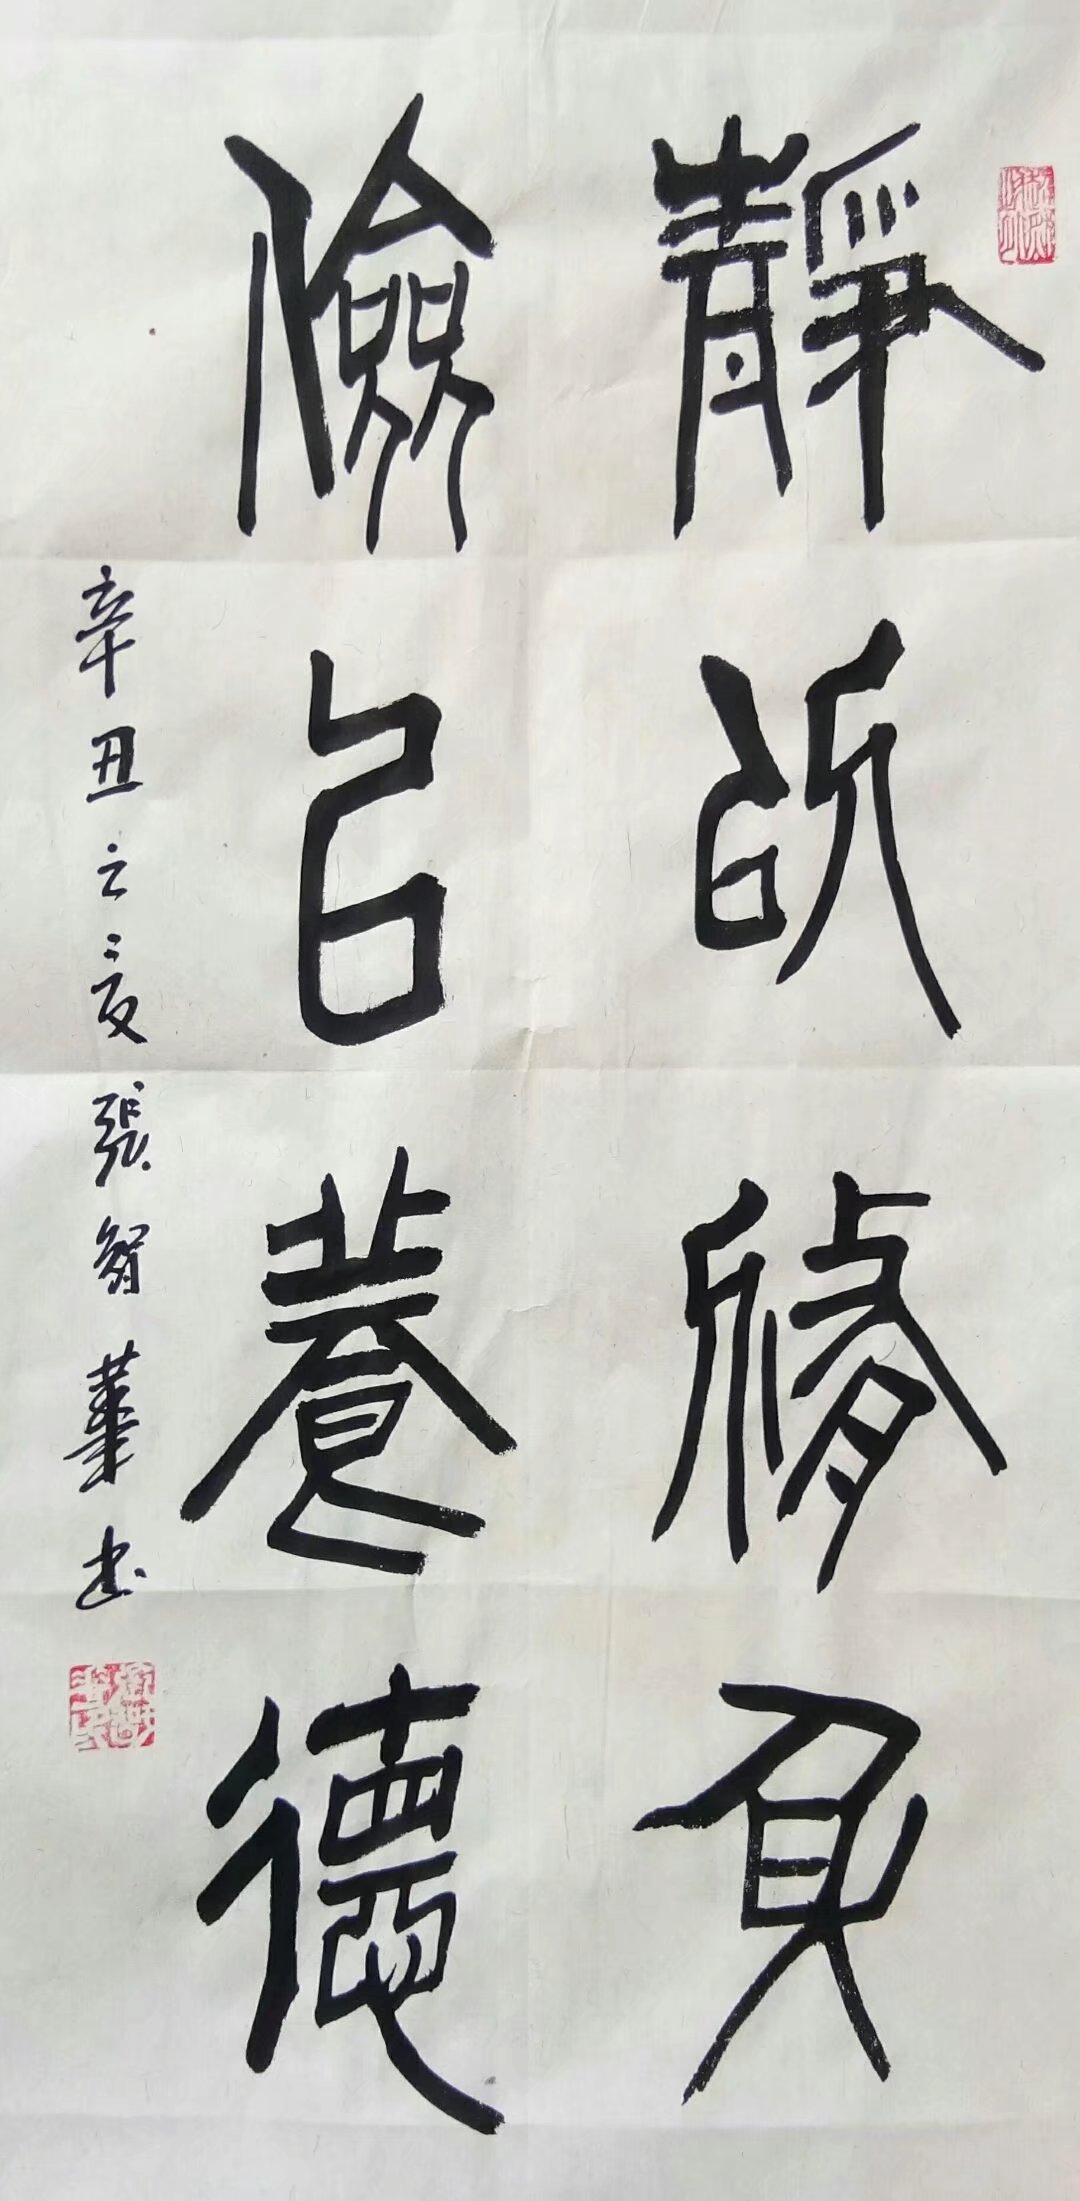 靜以修身
儉以養德
辛丑之夏張智華書